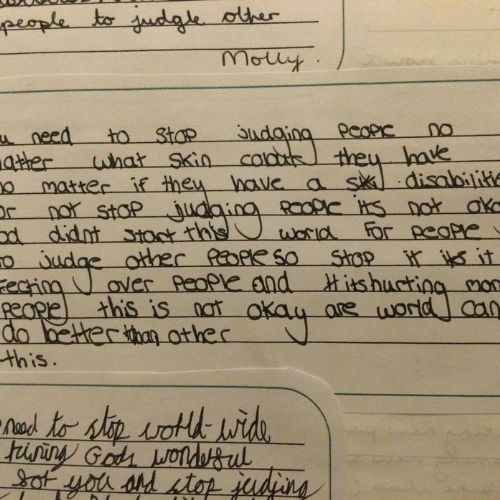 people to judgle other
Molly.
need to stop judging people no
matter what skin they have
no matter if they have a disabilitie
or not stop judging people its not oka
didnt start this world for people
to judge other people so stop it it
over people and itshurting mor
people this is not okay are world can
do better than other
this.
need to stop world-wide
Gods wonderful
you and stop judjing